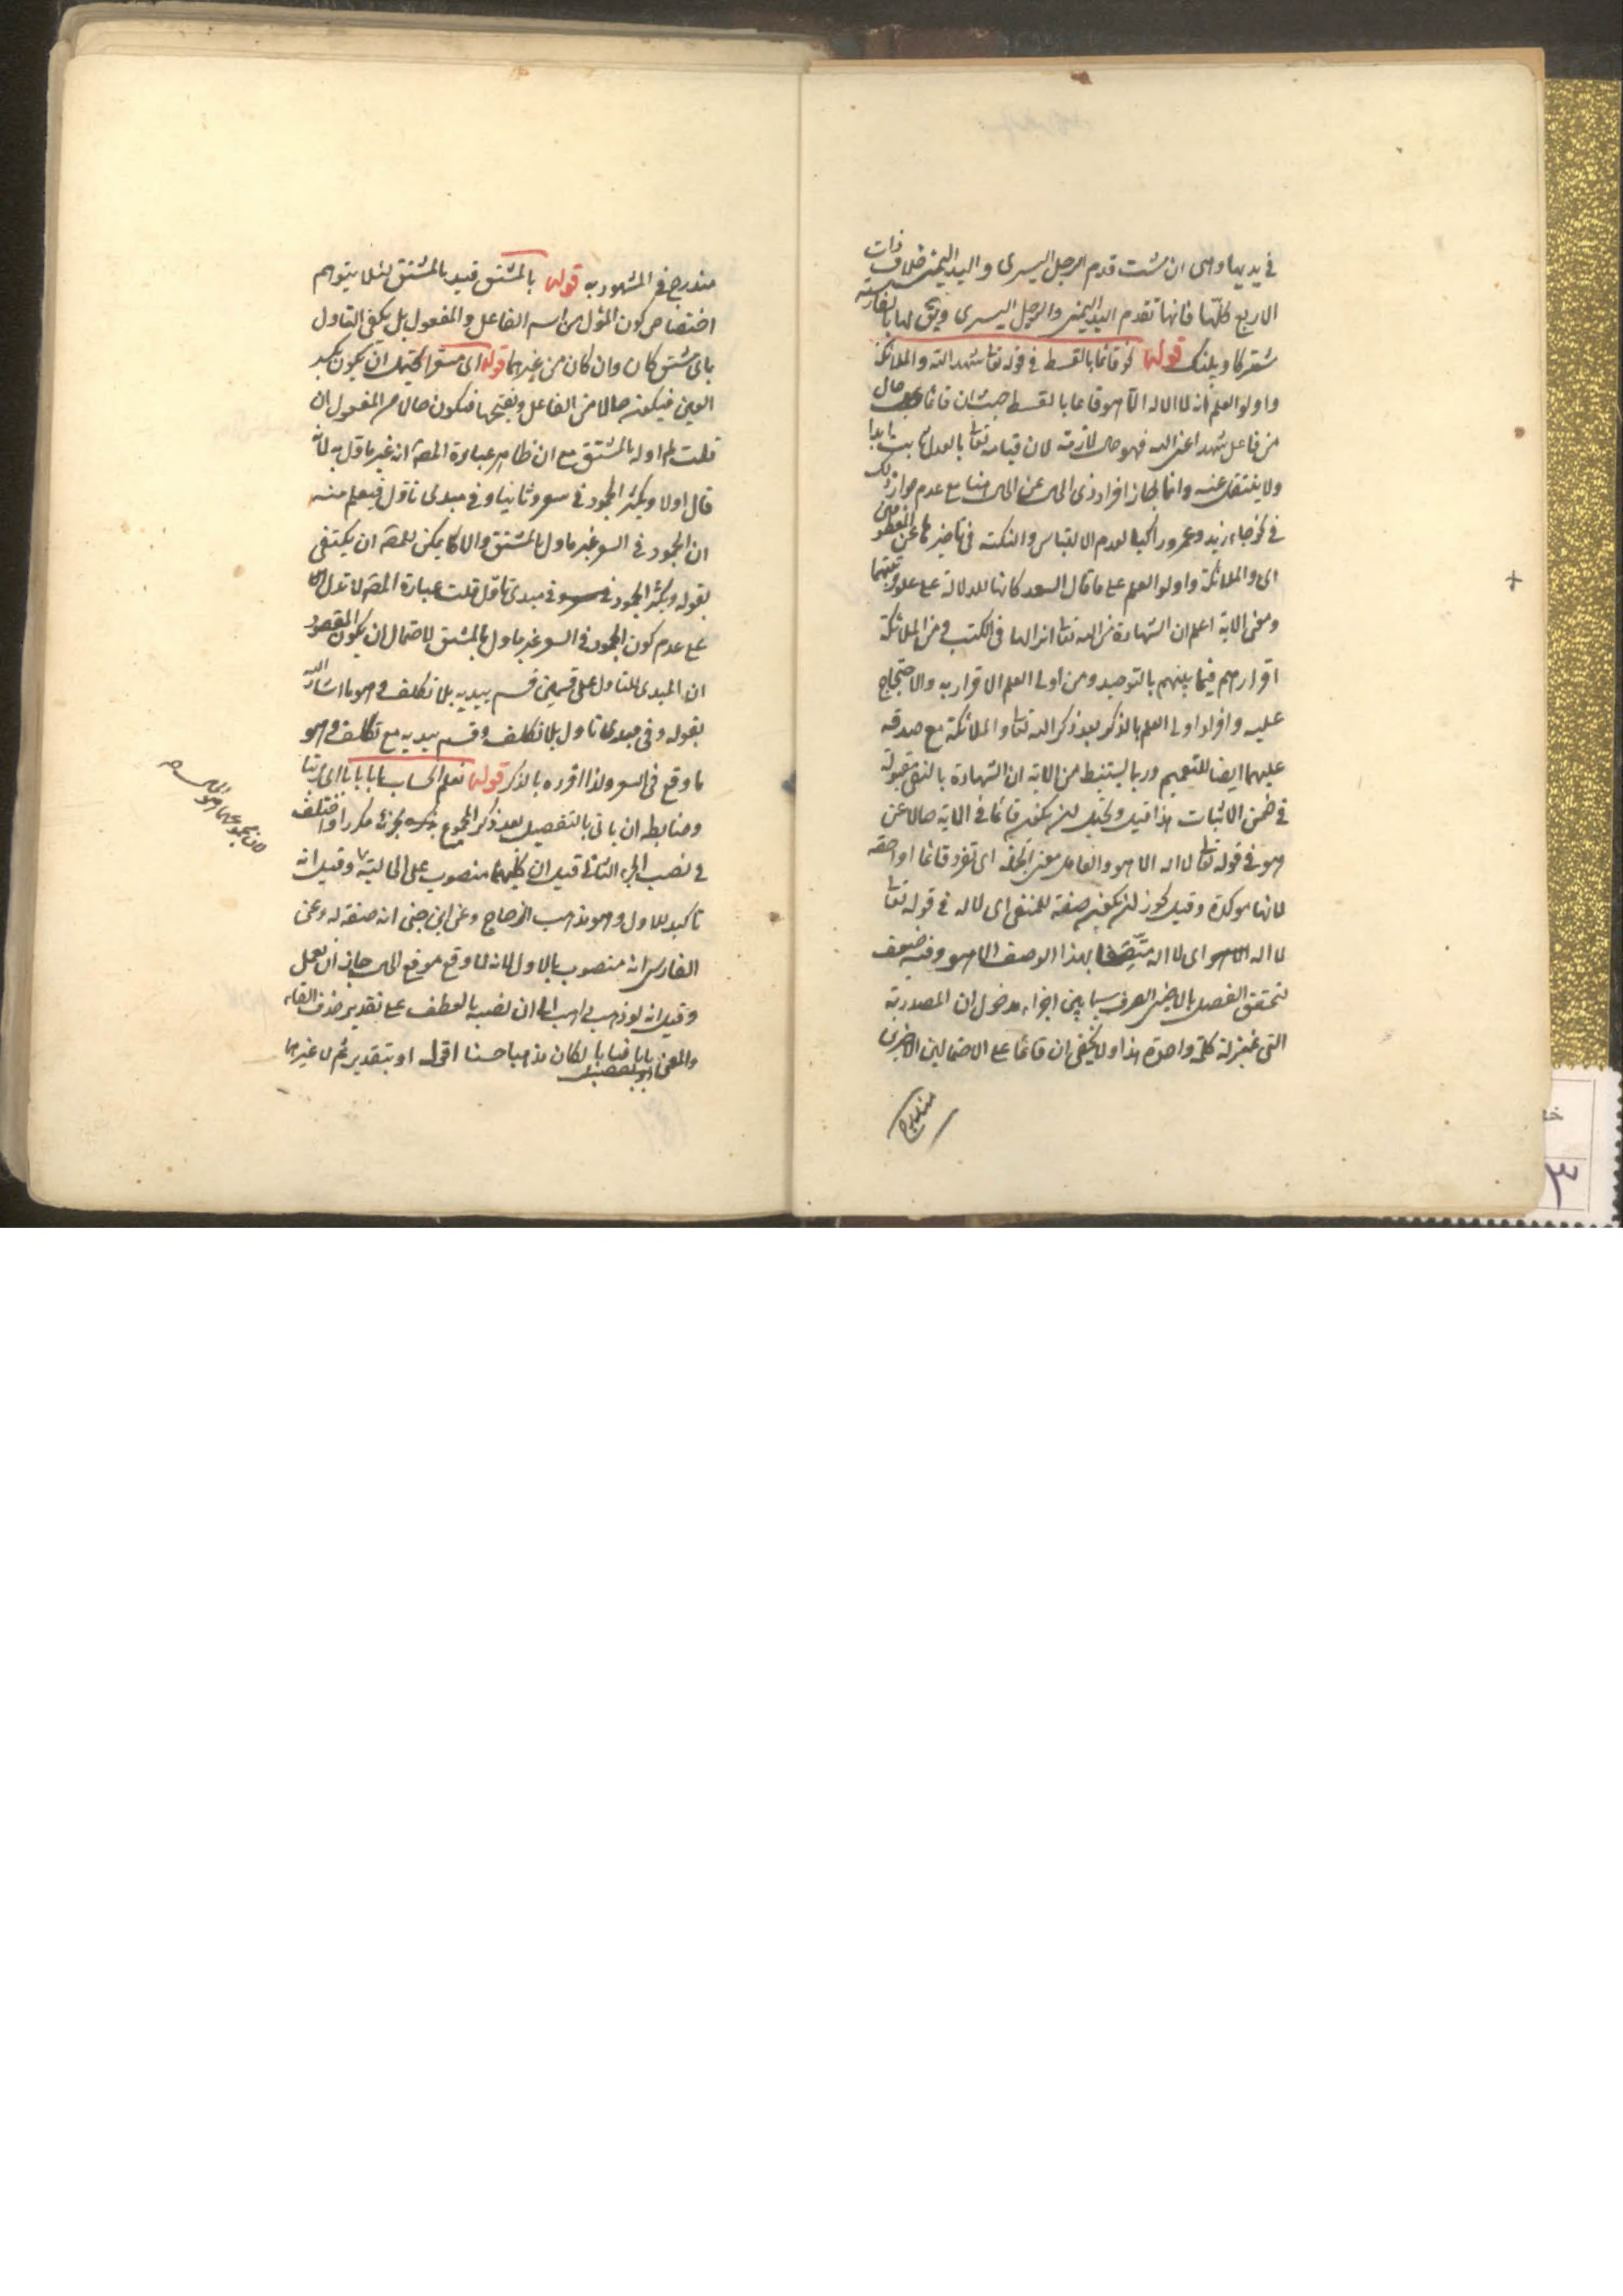 في يديها وهي ان مشت قدم الرجل اليسرى واليد اليمنى خلاف ذات
الاربع كلها فانها تقدم اليد اليمنى والرجل اليسرى ويق لها بالفارسية
شترگاو پلنگ قوله نحو قائما بالقسط في قوله تعا شهد الله والملائكة
واولو العلم انه لا اله الا هو قائما بالقسط حيث ان قائما حال
من فاعل شهد اعنى الله فهو حال لازمة لان قيامه تعا بالعدل ثابت ابدا
ولا ينتقل عنه وانما جاز افراد ذى الحال عن الحال هنا مع عدم جواز ذلك
في نحو جاء زيد وعمرو راكبا لعدم الالتباس والنكتة في تاخيرها عن المعطوفين
اى والملائكة واولو العلم على ما قال السعد كانها للدلالة على علو رتبتهما
ومعنى الاية اعلم ان الشهادة من الله تعا انزالها في الكتب ومن الملائكة
اقرارهم فيما بينهم بالتوحيد ومن اولى العلم الاقرار به والاحتجاج
عليه وافراد اولى العلم بالذكر بعد ذكر الله تعا والملائكة مع صدقه
عليهما ايضا للتعميم وربما يستنبط من الاية ان الشهادة بالنفى مقبولة
في ضمن الاثبات هذا قيل ويحتمل ان يكون قائما في الاية حالا عن
هو في قوله تعا لا اله الا هو والعامل معنى الجملة اى تفرد قائما او احقه
لانها موكدة وقيل يجوز ان يكون صفة للمنفى اى لا اله في قوله تعا
لا اله الا هو اى لا اله متصفا بهذا الوصف الا هو وفيه ضعف
لتحقق الفصل بالاجنبى الصرف سيما بين اجزاء مدخول ان المصدرية
التى بمنزلة كلمة واحدة هذا ولا يخفى ان قائما على الاحتمالين الاخيرين
مندرج في المشهود به قوله بالمشتق قيد بالمشتق لئلا يتوهم
اختصاص كون المؤل من اسم الفاعل والمفعول بل يكفى التاول
باى مشتق كان وان كان من غيرهما قوله اى مسعرا يحتمل ان يكون بكسر
العين فيكون حالا من الفاعل وبفتحها فيكون حالا من المفعول ان
قلت لم اوله بالمشتق مع ان ظاهر عبارة المصة انه غير ماول به لانه
قال اولا ويكثر الجمود في سعر وثانيا وفي مبدى تاول فيعلم منه
ان الجمود في السعر غير ماول بالمشتق والا كا يمكن للمصة ان يكتفى
بقوله ويكثر الجمود في مبدى تاول قلت عبارة المصة لا تدل
على عدم كون الجمود في السعر غير ماول بالمشتق لاحتمال ان يكون المقصود
ان المبدى للتاول على قسمين قسم يبديه بلا تكلف وهو ما اشار اليه
بقوله وفي مبدى تاول بلا تكلف وقسم يبديه مع تكلف وهو
ما وقع في السعر ولذا افرده بالذكر قوله تعلم الحساب بابا بابا اى مرتبا
وضابطه ان ياتى بالتفصيل بعد ذكر المجموع بجزئه مكررا واختلف
في نصب الجزء الثانى قيل ان كليهما منصوب على الحالية وقيل انه
تاكيد للاول وهو مذهب الزجاج وعن ابن جنى انه صفة له وعن
الفارسى انه منصوب بالاول لانه لما وقع موقع الحال جاز ان يعمل
وقيل انه لو ذهب ذاهب الى ان نصبه بالعطف على تقدير حذف الفاء
والمعنى بابا فبابا لكان مذهبا حسنا اقول او بتقدير ثم لا غيرها